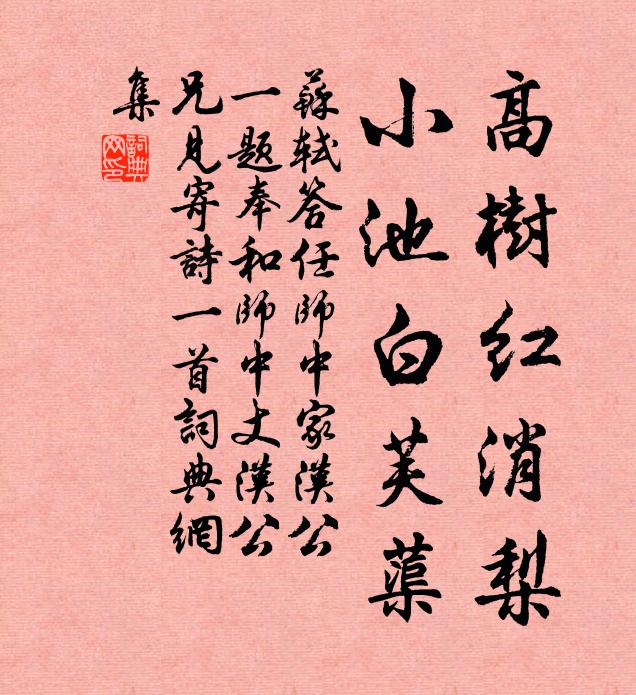 高樹紅消梨
小池白芙蕖
蘇軾答任師中家漢公
一題奉和師中丈漢公
兄見寄詩一首詞典網
集
詞典
网印